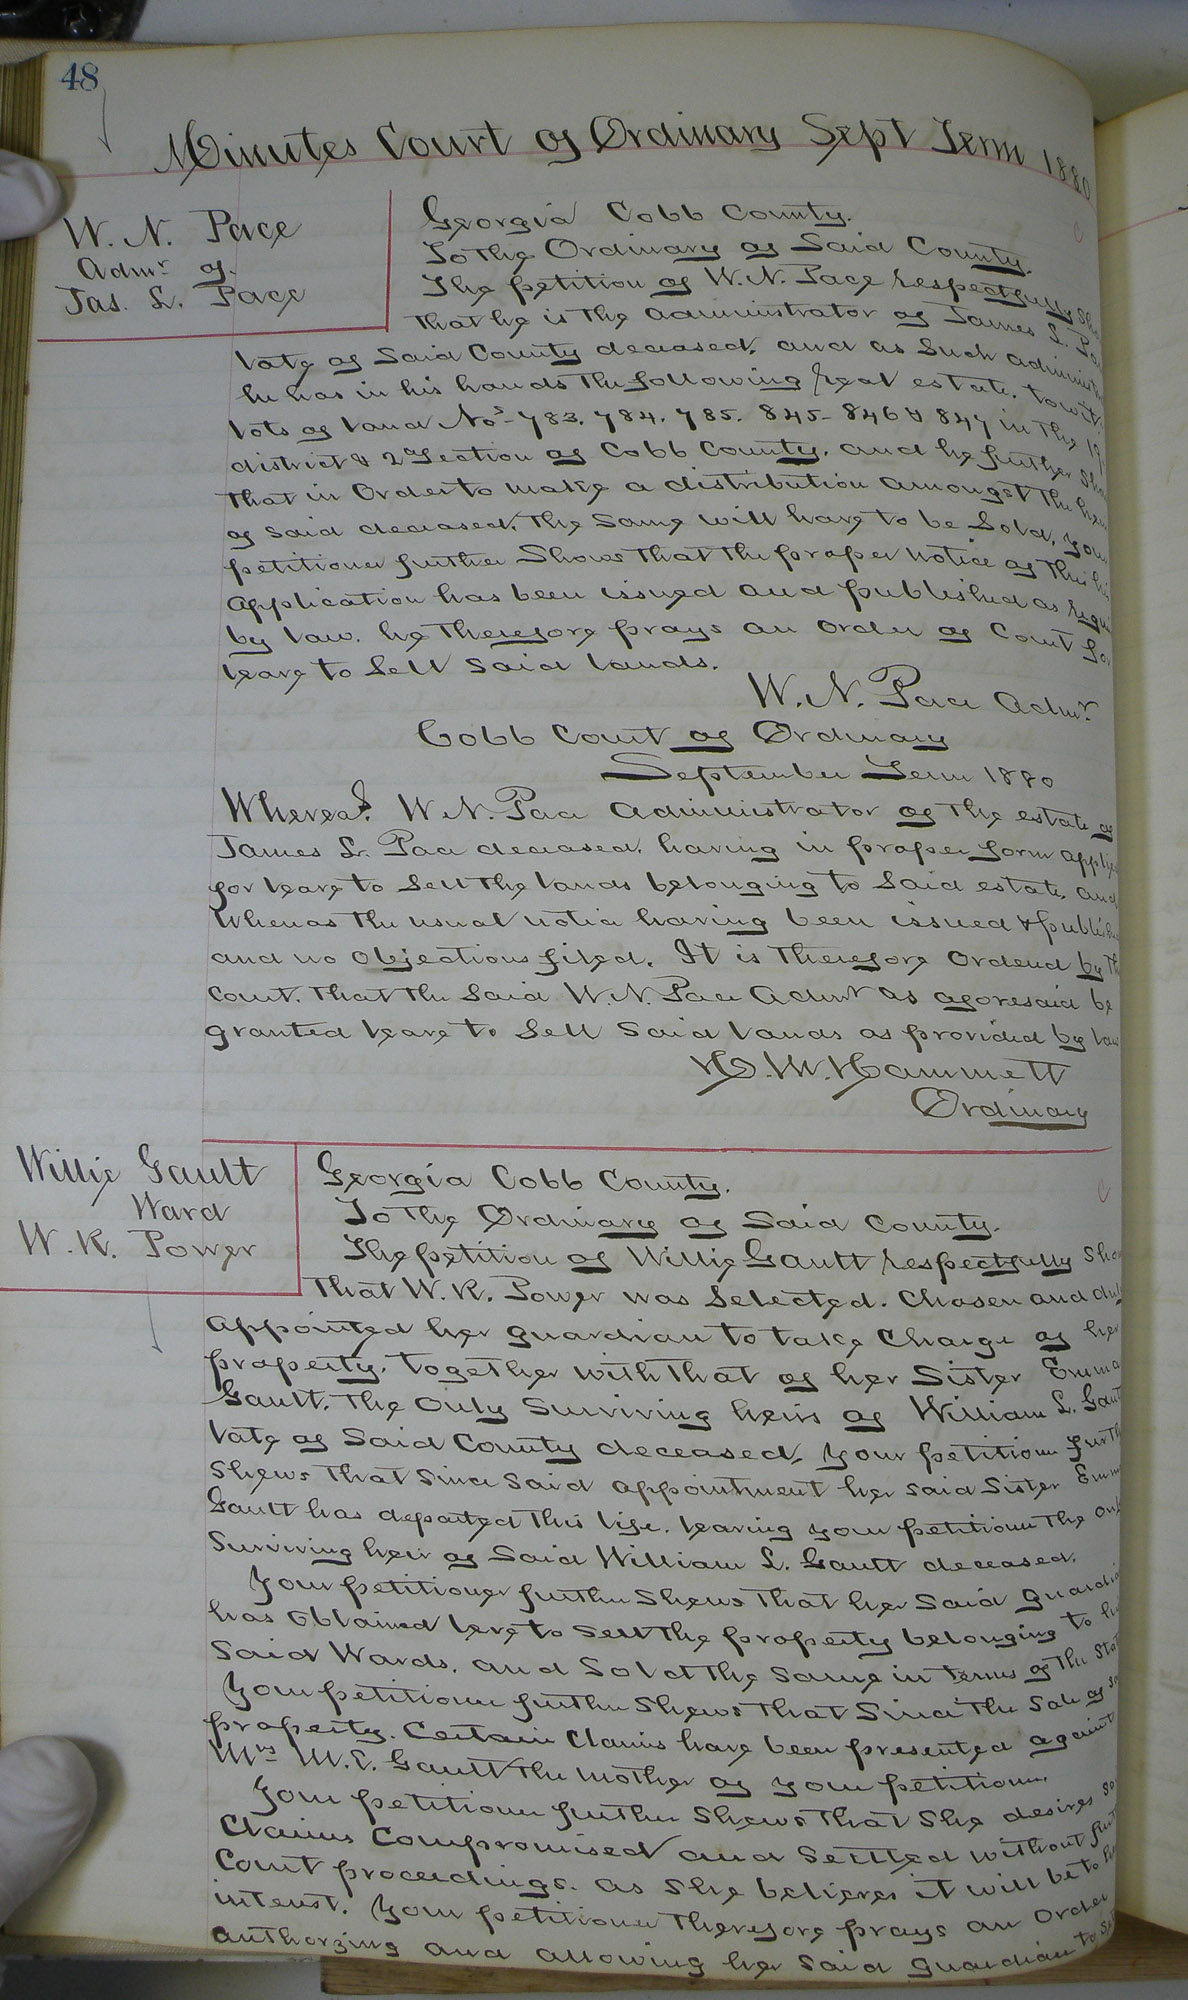 48
Minutes Court of Ordinary Sept Term 1880
W. N. Pace
Admr of
Jas. L. Pace
Georgia Cobb County.
To the Ordinary of Said County.
The petition of W. N. Pace respectfully
that he is the administrator of James L.
late of Said County deceased. and as Such
he has in his hands the following real estate. towit.
Lots of land Nos- 783. 784. 785. 845- 846 & 847 in the
district & 2 Section of Cobb County. and he further
that in Order to make a distribution amongst the
of said deceased. the Same will have to be Sold. your
petitioner further Shows that the proper notice of this
application has been issued and published as
by law. he therefore prays an Order of Court for
leave to Sell Said lands.
W. N. Pace Admr
Cobb Court of Ordinary
September Term 1880
Whereas. W. N. Pace administrator of the estate of
James L. Pace deceased. having in proper form
for leave to Sell the lands belonging to Said estate. and
Whereas the usual notice having been issued &
and no Objections filed. It is therefore Ordered by
Court. that the Said W. N. Pace Admr as aforesaid be
granted leave to Sell Said lands as provided by law
H. M. Hammett
Ordinary
Willie Gault
Ward
W. R. Power
Georgia Cobb County.
To the Ordinary of Said County.
The petition of Willie Gault respectfully
that W. R. Power was Selected. Chosen and
appointed her guardian to take Charge of her
property. together with that of her Sister Emma
Gault. the only Surviving heirs of William L.
late of Said County deceased, your petitioner
shews that Since said appointment her said Sister
Gault has departed this life. leaving your petitioner the
Surviving heir of Said William L. Gault deceased.
Your petitioner further Shews that her Said
has obtained leve to Sell the property belonging to
Said Wards. and Sold the Same in terms of the
Your petitioner further Shews that Since the Sale of
property. Certain Claims have been presented against
Mrs M. E. Gault the mother of your petitioner.
Your petitioner further Shews that She desires
Claims Compromised and Settled without
Court proceedings. as She believes it will be to
interest. Your petitioner therefore prays an Order
authorzing and allowing her Said guardian to